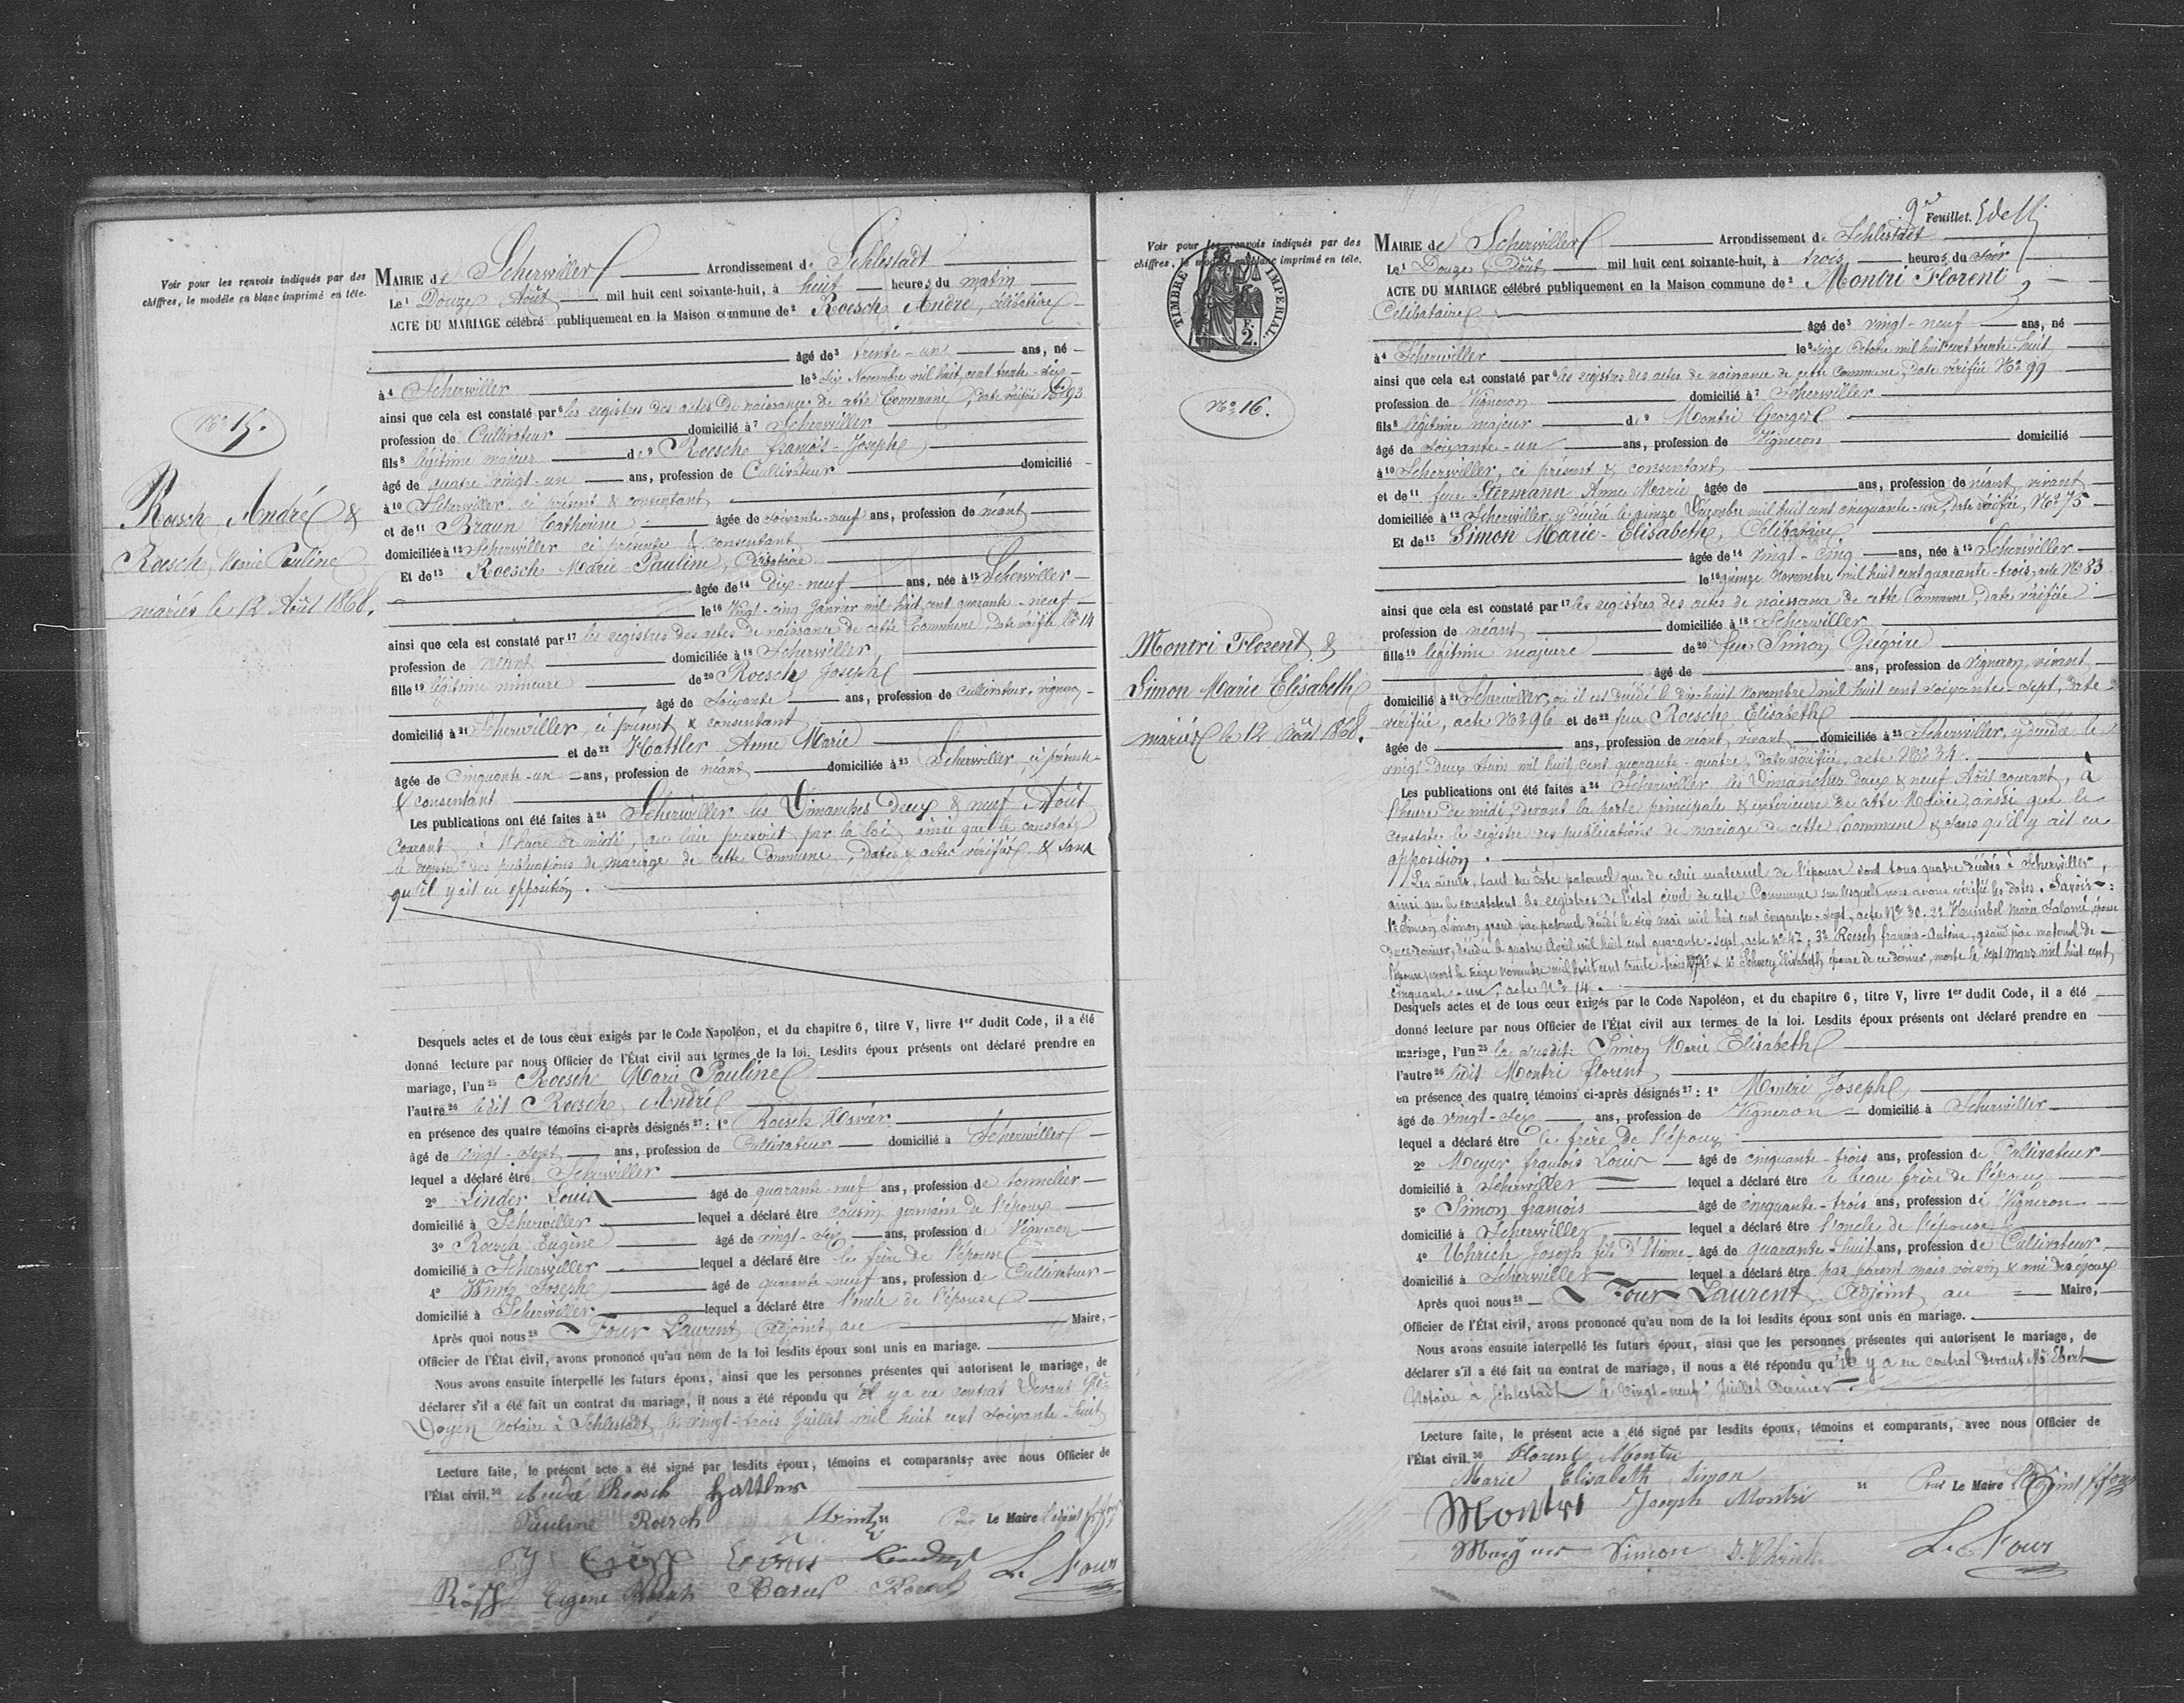 Voir pour les renvois indiqués par des
chiffres, le modèle en blanc imprimé en tête.
No 15.
Roesch André &
Roesch Marie Pauline
mariés le 12 Août 1868.
MAIRIE de Scherwiller Arrondissement de Schlestadt
Le 1 Douze Août mil huit cent soixante-huit, à huit heures du matin
ACTE DU MARIAGE célébré publiquement en la Maison commune de 2 Roesch André, célibataire
âgé de 3 trente-un ans, né
à 4 Scherwiller le 5 Novembre mil huit cent trente-six
ainsi que cela est constaté par 6 les registres des actes de naissance de cette Commune, date vérifiée No 93
profession de Cultivateur domicilié à 7 Scherwiller
fils 8 légitime majeur de 9 Roesch françois-Joseph
âgé de quatre vingt-un ans, profession de Cultivateur domicilié
à 10 Scherwiller, ci présent & consentant
et de 11 Braun Catherine âgée de soixante-neuf ans, profession de néant
domiciliée à 12 Scherwiller ci présente & consentant
Et de 13 Roesch Marie-Pauline, Célibataire
âgée de 14 dix-neuf ans, née à 15 Scherwiller
le 16 Vingt-cinq Janvier mil huit cent quarante-neuf
ainsi que cela est constaté par 17 les registres des actes de naissance de cette Commune, date vérifiée, No 14
profession de néant domiciliée à 18 Scherwiller
fille 19 légitime mineure de 20 Roesch Joseph
âgé de Soixante ans, profession de cultivateur, vigneron
domicilié à 21 Scherwiller, ci présent & consentant
et de 22 Hattler Anne Marie
âgée de Cinquante-un ans, profession de néant domiciliée à 23 Scherwiller, ci présente
& consentant
Les publications ont été faites à 24 Scherwiller les Dimanches Deux & neuf Août
courant, à l'heure de midi, au lieu prescrit par la loi, ainsi que le constate
le registre des publications de mariage de cette Commune, dates & actes vérifiés & sans
qu'il y ait eu opposition.
Desquels actes et de tous ceux exigés par le Code Napoléon, et du chapitre 6, titre V, livre 1er dudit Code, il a été
donné lecture par nous Officier de l'État civil aux termes de la loi. Lesdits époux présents ont déclaré prendre en
mariage, l'un 25 Roesch Marie Pauline
l'autre 26 ledit Roesch André
en présence des quatre témoins ci-après désignés 27 : 1o Roesch Xavier
âgé de vingt-sept ans, profession de Cultivateur domicilié à Scherwiller
lequel a déclaré être Scherwiller
2o Linder Louis âgé de quarante-neuf ans, profession de tonnelier
domicilié à Scherwiller lequel a déclaré être cousin germain de l'époux
3o Roesch Eugène âgé de vingt-six ans, profession de Vigneron
domicilié à Scherwiller lequel a déclaré être le frère de l'épouse
4o Joseph âgé de quarante-neuf ans, profession de Cultivateur
domicilié à Scherwiller lequel a déclaré être l'oncle de l'épouse
Après quoi nous 28 Four Laurent Adjoint au Maire,
Officier de l'État civil, avons prononcé qu'au nom de la loi lesdits époux sont unis en mariage.
Nous avons ensuite interpellé les futurs époux, ainsi que les personnes présentes qui autorisent le mariage, de
déclarer s'il a été fait un contrat du mariage, il nous a été répondu qu'il y a eu contrat devant Me
Doyen Notaire à Schlestadt, le vingt-trois Juillet mil huit cent soixante-huit
Lecture faite, le présent acte a été signé par lesdits époux, témoins et comparants, avec nous Officier de
l'État civil. 30 André Roesch Hattler
Pauline Roesch Le Maire l'adjoint
Eugène L. Four
Voir pour les renvois indiqués par des
chiffres, le modèle en blanc imprimé en tête.
TIMBRE IMPERIAL
F. 2.
No 16.
Montri Florent &
Simon Marie Elisabeth
mariés le 12 Août 1868.
9e Feuillet.
MAIRIE de Scherwiller Arrondissement de Schlestadt
Le 1 Douze Août mil huit cent soixante-huit, à trois heures du soir
ACTE DU MARIAGE célébré publiquement en la Maison commune de 2 Montri Florent
Célibataire
âgé de 3 vingt-neuf ans, né
à 4 Scherwiller le 5 Octobre mil huit cent trente-huit
ainsi que cela est constaté par 6 les registres des actes de naissance de cette Commune, Date vérifiée No 99
profession de Vigneron domicilié à 7 Scherwiller
fils 8 légitime majeur de 9 Montri George
âgé de soixante-un ans, profession de Vigneron domicilié
à 10 Scherwiller, ci présent & consentant
et de 11 feue Anne Marie âgée de ans, profession de néant, vivant
domiciliée à 12 Scherwiller, y décédée le quinze Décembre mil huit cent cinquante-un, Date vérifiée, No 75
Et de 13 Simon Marie-Elisabeth, Célibataire
âgée de 14 Vingt-Cinq ans, née à 15 Scherwiller
le 16 quinze Novembre mil huit cent quarante-trois, acte No 83
ainsi que cela est constaté par 17 les registres des actes de naissance de cette Commune, Date vérifiée
profession de néant domiciliée à 18 Scherwiller
fille 19 légitime majeure de 20 feu Simon Grégoire
âgé de ans, profession de Vigneron, vivant
domicilié à 21 Scherwiller, où il est décédé le dix-huit Novembre mil huit cent soixante-sept, Date
vérifiée, acte No 96 et de 22 feue Roesch Elisabeth
âgée de ans, profession de néant, vivant domiciliée à 23 Scherwiller, y décédée le
vingt-deux Juin mil huit cent quarante-quatre, Date vérifiée, acte No 34.
Les publications ont été faites à 24 Scherwiller les Dimanches deux & neuf Août courant, à
l'heure de midi, devant la porte principale & extérieure de cette Mairie, ainsi que le
constate le registre des publications de mariage de cette Commune & sans qu'il y ait eu
opposition.
Les aïeuls, tant du côté paternel que de celui maternel de l'épouse sont tous quatre décédés à Scherwiller,
ainsi que le constatent les registres de l'état civil de cette Commune sur lesquels nous avons vérifié les dates. Savoir :
1o Simon Simon grand père paternel décédé le six mai mil huit cent cinquante-sept, acte No 30. 2o Marie Salomé, épouse
de ce dernier, décédée le quatre Avril mil huit cent quarante-sept, acte No 47; 3o Roesch françois-Antoine, grand père maternel de
l'épouse, mort le treize novembre mil huit cent trente-trois & 4o Elisabeth épouse de ce dernier, morte le sept Mars mil huit cent
cinquante-un, acte No 14.
Desquels actes et de tous ceux exigés par le Code Napoléon, et du chapitre 6, titre V, livre 1er dudit Code, il a été
donné lecture par nous Officier de l'État civil aux termes de la loi. Lesdits époux présents ont déclaré prendre en
mariage, l'un 25 la susdite Simon Marie Elisabeth
l'autre 26 ledit Montri florent
en présence des quatre témoins ci-après désignés 27 : 1o Montri Joseph
âgé de vingt-six ans, profession de Vigneron domicilié à Scherwiller
lequel a déclaré être le frère de l'époux
2o Meyer françois Louis âgé de cinquante-trois ans, profession de Cultivateur
domicilié à Scherwiller lequel a déclaré être le beau frère de l'époux
3o Simon françois âgé de cinquante-trois ans, profession de Vigneron
domicilié à Scherwiller lequel a déclaré être l'oncle de l'épouse
4o Uhrich Joseph fils d'Etienne âgé de quarante-huit ans, profession de Cultivateur
domicilié à Scherwiller lequel a déclaré être pas parent mais voisin & ami des époux
Après quoi nous 28 Four Laurent, Adjoint au Maire,
Officier de l'État civil, avons prononcé qu'au nom de la loi lesdits époux sont unis en mariage.
Nous avons ensuite interpellé les futurs époux, ainsi que les personnes présentes qui autorisent le mariage, de
déclarer s'il a été fait un contrat de mariage, il nous a été répondu qu'il y a eu contrat devant Me Ebert
Notaire à Schlestadt le vingt-neuf Juillet dernier.
Lecture faite, le présent acte a été signé par lesdits époux, témoins et comparants, avec nous Officier de
l'État civil. 30 Florent Montri
Marie Elisabeth Simon 31 Pour Le Maire l'adjoint
Montri Joseph Montri
Simon L. Four